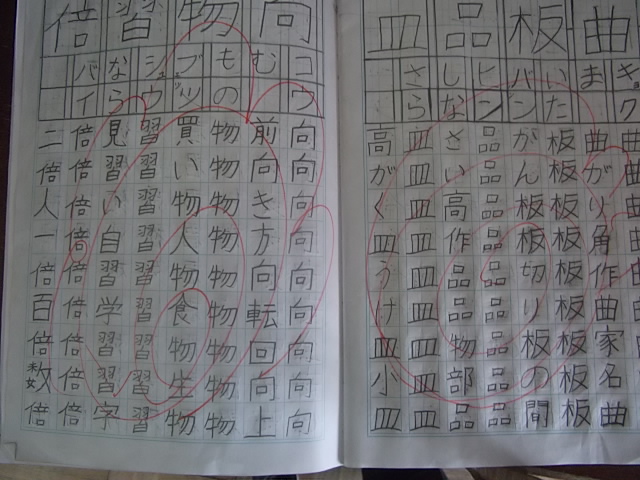 曲
キョク
ま
曲曲曲曲曲曲曲曲曲
曲がり角作曲家名曲
板
いた
バン
板板板板板板板板板
がん板板切り板の間
品
ヒン
しな
品品品品品品品品品
さい高作品品物部品
皿
さら
皿皿皿皿皿皿皿皿皿
高がく皿うけ皿小皿
向
コウ
む
向向向向向向向向向
前向き方向転回向上
物
もの
ブツ
物物物物物物物物物
買い物人物食物生物
習
シュウ
なら
習習習習習習習習習
見習い自習学習習字
倍
バイ
倍倍倍倍倍倍倍倍倍
二倍人一倍百倍数倍